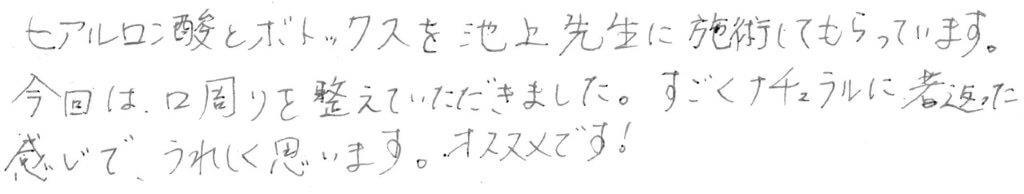 ヒアルロン酸とボトックスを池上先生に施術してもらっています。
今回は、口周りを整えていただきました。すごくナチュラルに若返った
感じで、うれしく思います。オススメです!